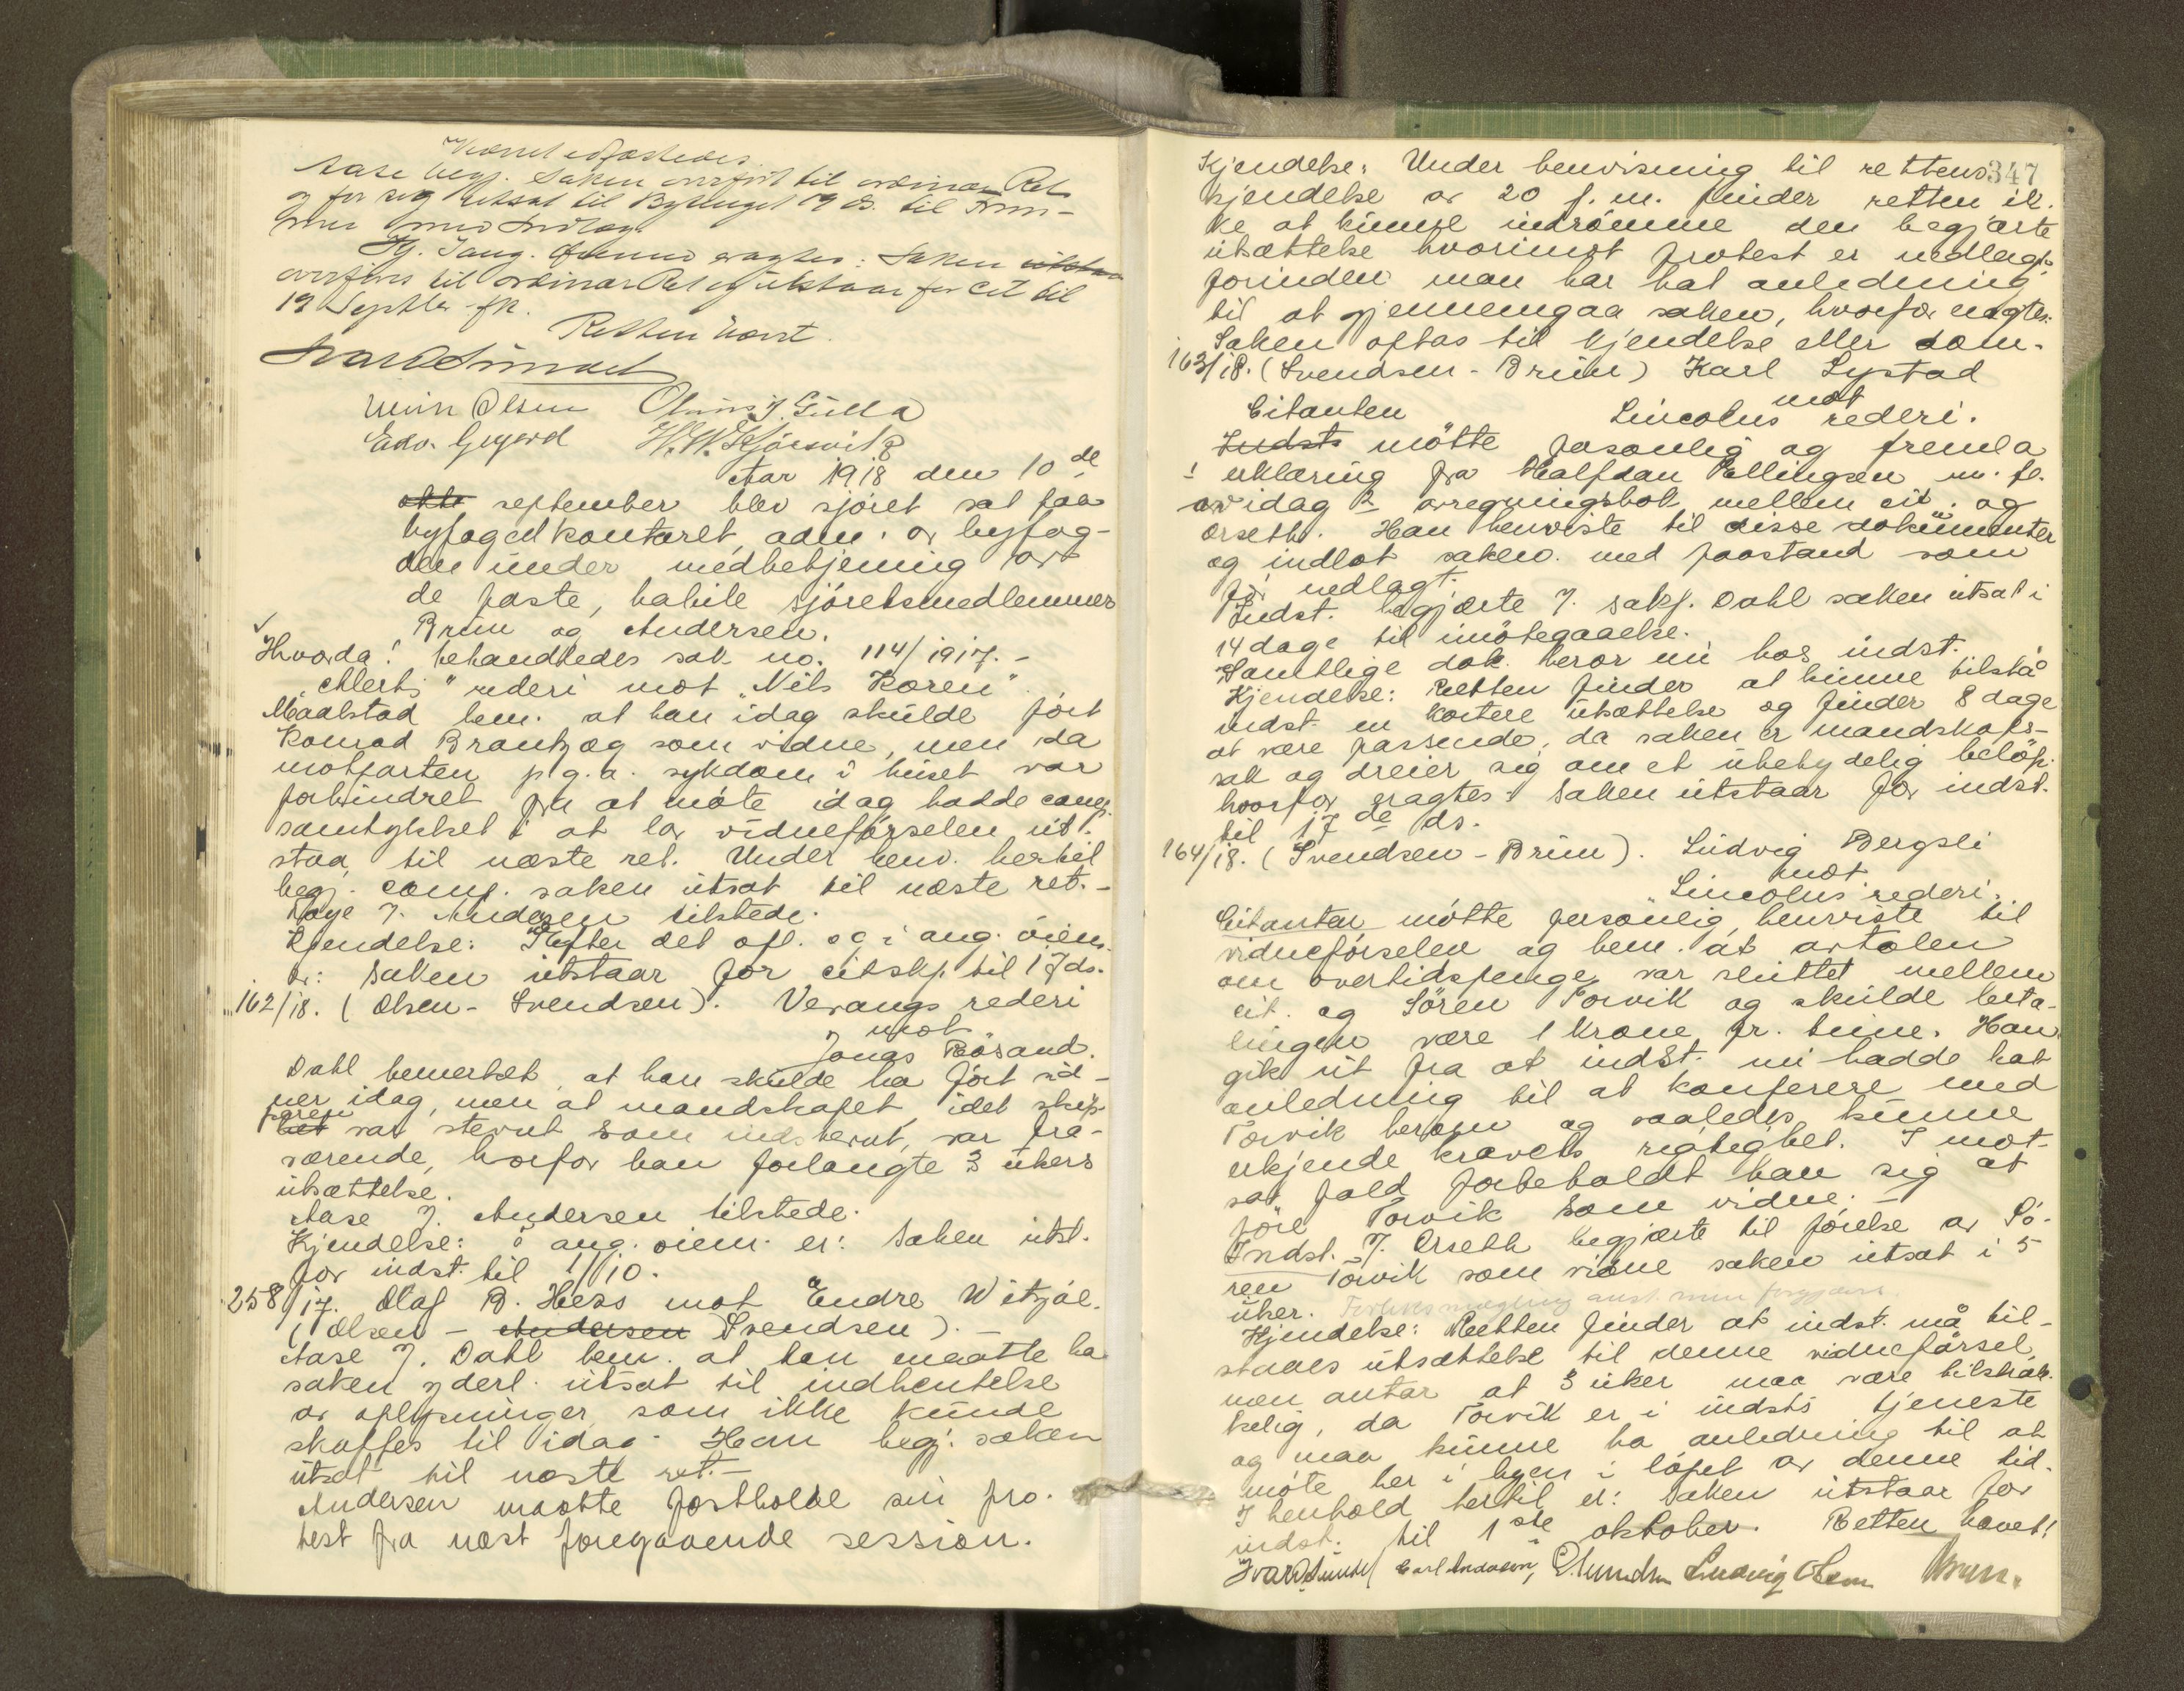 Aase begj. Saken overført til ordinær Ret
og for sig utsat til Bytinget 19 ds. til
med Indlæg.
Kj. I ang. eragtes: Saken
overføres til ordinær Ret og utstaar for Cit til
19 Septbr. fk.
Retten hævet.
Ivar Sundet
Olsen
H. W. Kjørsvik
Aar 1918 den 10de
september blev sjöret sat paa
byfogedkontoret, adm. av byfog-
den under medbetjening av
de faste, habile sjöretsmedlemmer
Brun og Andersen.
Hvorda! behandledes sak no. 114/1917. -
"Alerts" rederi mot "Nils Koren".
Maalstad bem. at han idag skulde fört
Konrad Brantzæg som vidne, men da
motparten p.g.a. sykdom i huset var
forhindret fra at möte idag hadde comp.
samtykket i at la vidneförselen ut-
staa til næste ret. Under henv. hertil
begj. comp. saken utsat til næste ret. -
Andersen tilstede.
Kjendelse: Efter det opl. og i ang. öiem.
er: Saken utstaar for citskp. til 17 ds.
162/18. (Olsen - Svendsen). Verangs rederi
mot
Jonas Rösand.
Dahl bemerket, at han skulde ha fört vid-
ner idag, men at mandskapet, idet skip-
paren
var stevnt som indstevnt, var fra-
værende, hvorfor han forlangte 3 ukers
utsættelse.
Aase f. Andersen tilstede.
Kjendelse: I ang. öiem. er: Saken utst.
for indst. til 1/10.
258/17. Olaf B. Hess mot Endre Witzöe.
(Olsen - Andersen Svendsen). -
Aase f. Dahl bem. at han maatte ha
saken yderl. utsat til indhentelse
av oplysninger som ikke kunde
skaffes til idag. Han begj. saken
utsat til næste ret. -
Andersen maatte fastholde sin pro-
test fra næst foregaaende session.
347
Kjendelse: Under henvisning til rettens
kjendelse av 20 f.m. finder retten ik-
ke at kunne indrömme den begjærte
utsættelse hvorimot protest er nedlagt
forinden man har hat anledning
til at gjennemgaa saken, hvorfor eragtes:
Saken optas til kjendelse eller dom.
163/18. (Svendsen - Brun) Karl Systad
mot
Lincolns rederi.
Citanten
Indsts mötte personlig og fremla
1 erklæring fra Halfdan Pellingsen m. fl.
av idag 2 avregningsbok mellem cit. og
Orseth. Han henviste til disse dokumenter
og indlot saken med paastand som
för nedlagt.
Indst. begjærte f. sakf. Dahl saken utsat i
14 dage til imötegaaelse.
Samtlige dok. beror nu hos indst.
Kjendelse: Retten finder at kunne tilstå
indst. en kortere utsættelse og finder 8 dage
at være passende, da saken er mandskaps-
sak og dreier sig om et ubetydelig belöp.
hvorfor eragtes: Saken utstaar for indst.
til 17de ds.
164/18. (Svendsen - Brun). Ludvig Bergsli
mot
"Lincolns" rederi.
Citanten mötte personlig, henviste til
vidneförselen og bem. at avtalen
om overtidspenge var sluttet mellem
cit. og Sören Torvik og skulde beta-
lingen være 1 krone pr. time. Han
gik ut fra at indst. nu hadde hat
anledning til at konferere med
Torvik herom og saaledes kunne
erkjende kravets rigtighet. I mot-
sat fald forbeholdt han sig at
före Torvik som vidne. -
Indst. f. Orseth begjærte til förelse av Sö-
ren Torvik som vidne saken utsat i 5
uker. Forliksmægling anst. men forgjæves.
Kjendelse: Retten finder at indst. må til-
staaes utsættelse til denne vidneförsel,
men antar at 3 uker maa være tilstræk-
kelig, da Torvik er i indsts tjeneste
og maa kunne ha anledning til at
möte her i byen i löpet av denne tid.
I henhold hertil er: Saken utstaar for
indst. til 1ste oktober. Retten hævet!
Ivar Sundet Carl Andersen, Ludvig Olsen Brun.